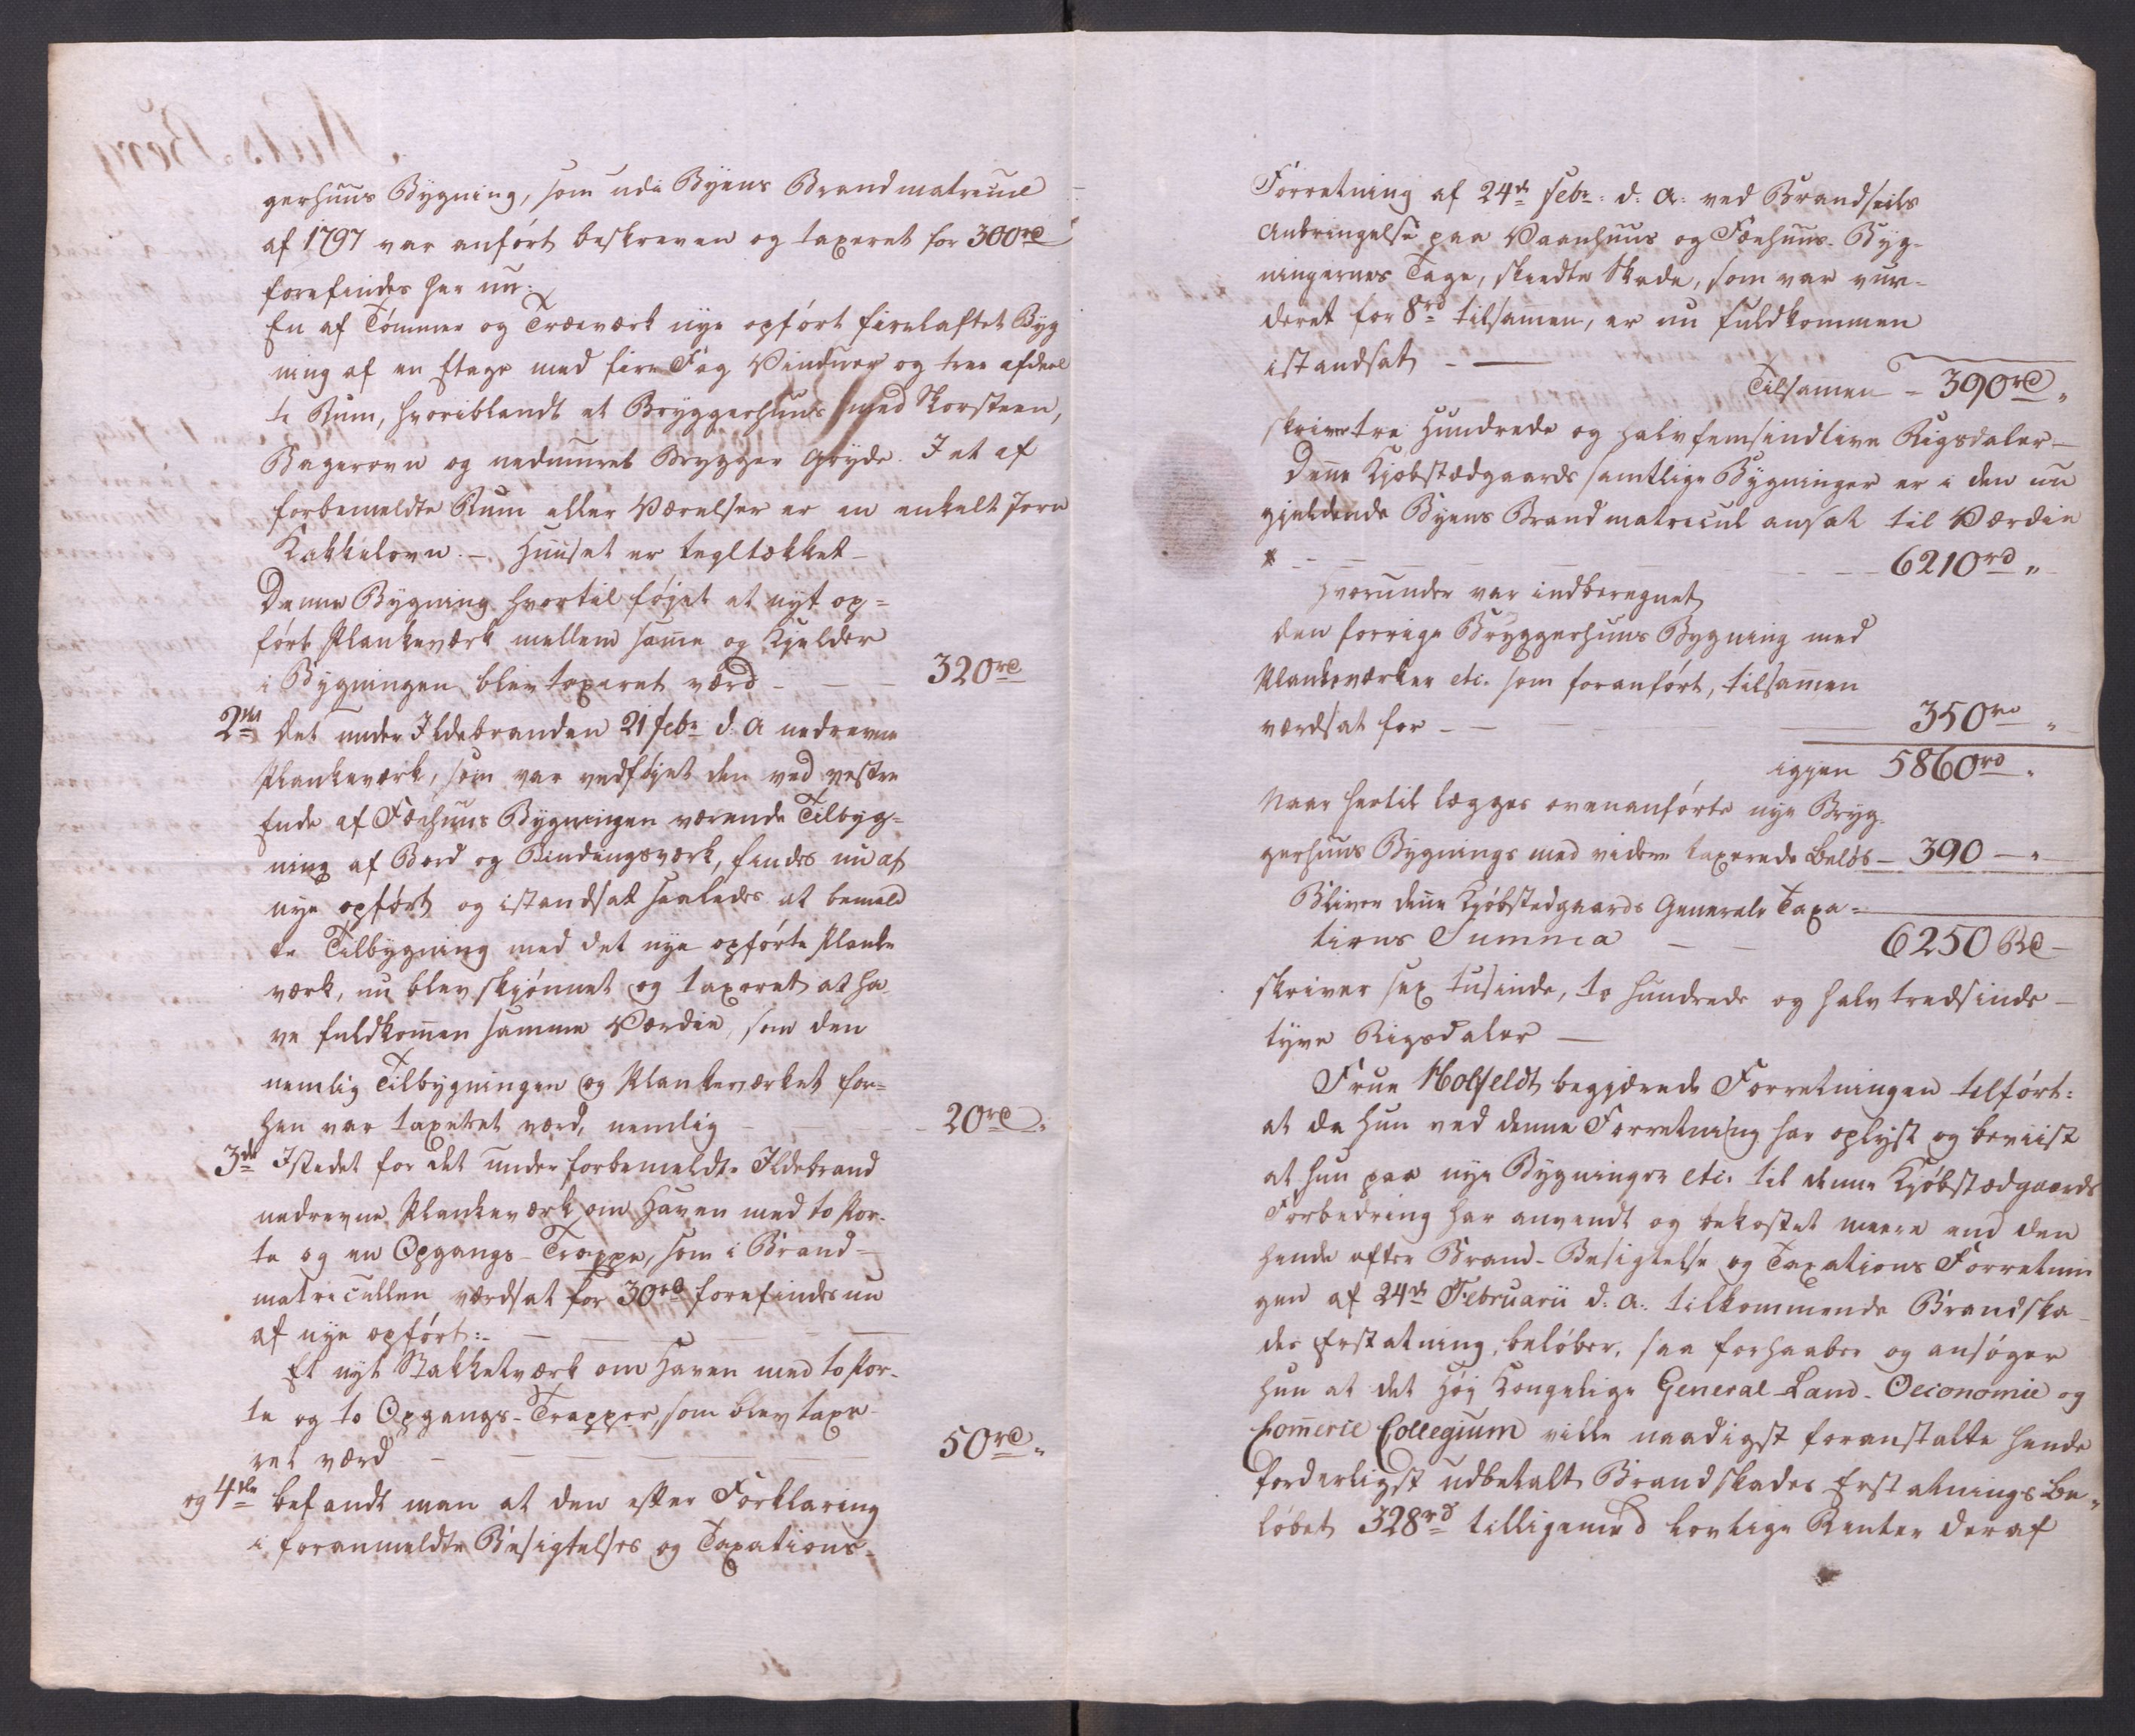 gerhuus Bygning, som udi Byens Brandmatrecul
af 1797 var anført beskreven og taxeret for 300rd
forefindes her nu:
En af Tømmer og Træeværk nye opført firelaftet Byg
ning af en Etage med fire Fag Vinduer og tree afdeel
te Rum, hvoriblandt et Bryggerhuus med Skorsteen,
Bagerovn og nedmuret Brygger Gryde. I et af
forbemeldte Rum eller Værelser er en enkelt Jern
Kakkelovn. – Huuset er tegltækket –
Denne Bygning hvortil føjet et nyt op=
ført Plankeværk mellem samme og Kjelder
i Bygningen blev taxeret værd – – – 320rd
2det Det under Ildebranden 21 febr d: A nedrevne
Plankeværk, som var vedføjet den ved vestre
Ende af Fæehuus Bygningen værende Tilbyg=
ning af Bord og Bindingsværk, findes nu af
nye opført og istandsat saaledes at bemeld
te Tilbygning med det nye opførte Planke
værk, nu blev skjønnet og taxeret at ha
ve fuldkommen samme Værdie, som den
nemlig Tilbygningen og Plankeværket for=
hen var taxeret værd, nemlig – – 20rd „
3de Istedet for det under forbemeldte Ildebrand
nedrevne Plankeværk om Haven med to Por-
te og en Opgangs-Trappe, som i Brand=
matricullen værdsat for 30rd forefindes nu
af nye opført:- – – –
Et nyt Stakketværk om Haven med to Por-
te og to Opgangs-Trapper, som blev taxe-
ret værd – – – – 50rd „
og 4de befandt man at den efter Forklaring
i foranmeldte Besigtelses og Taxations-
Forretning af 24de febr: d: A: ved Brandseils
Anbringelse paa Vaanhuus og Fæehuus-Byg-
ningernes Tage, skeedte Skade, som var vur-
deret for 8rd tilsammen, er nu fuldkommen
istandsat – —
Tilsammen – 390rd „
skriver tre Hundrede og halvfemsindtive Rigsdaler –
Denne Kjøbstædgaards samtlige Bygninger er i den nu
gjeldende Byens Brandmatrecul ansat til Værdie
– – – – 6210rd „
hvorunder var indberegnet
den forrige Bryggerhuus Bygning med
Plankeværker etc. som foranført, tilsammen
værdsat for – – – 350rd „
igjen 5860rd „
Naar hertil lægges ovenanførte nye Bryg-
gerhuus Bygnings med videre taxerede Beløb – 390 – „
Bliver denne Kjøbstedgaards Generale Taxa=
tions Summa – – 6250 Rd –
skriver sex tusinde, to hundrede og halvtredsinde –
tyve Rigsdaler —
Frue Holfeldt begjærede Forretningen tilført:
at da hun ved denne Forretning har oplyst og beviist
at hun paa nye Bygninger etc. til denne Kjøbstædgaards
Forbedring har anvendt og bekostet meere end den
hende efter Brand-Besigtelse og Taxations Forretnin
gen af 24de Februarii d: A: tilkommende Brandska-
des Erstatning, beløber, saa forhaaber og ansøger
hun at det Høj Kongelige General-Land-Oeconomie og
Commerie Collegium ville naadigst foranstalte hende
forderligst udbetalt Brandskades Erstatnings Be„
løbet 328rd tilligemed lovlige Renter deraf